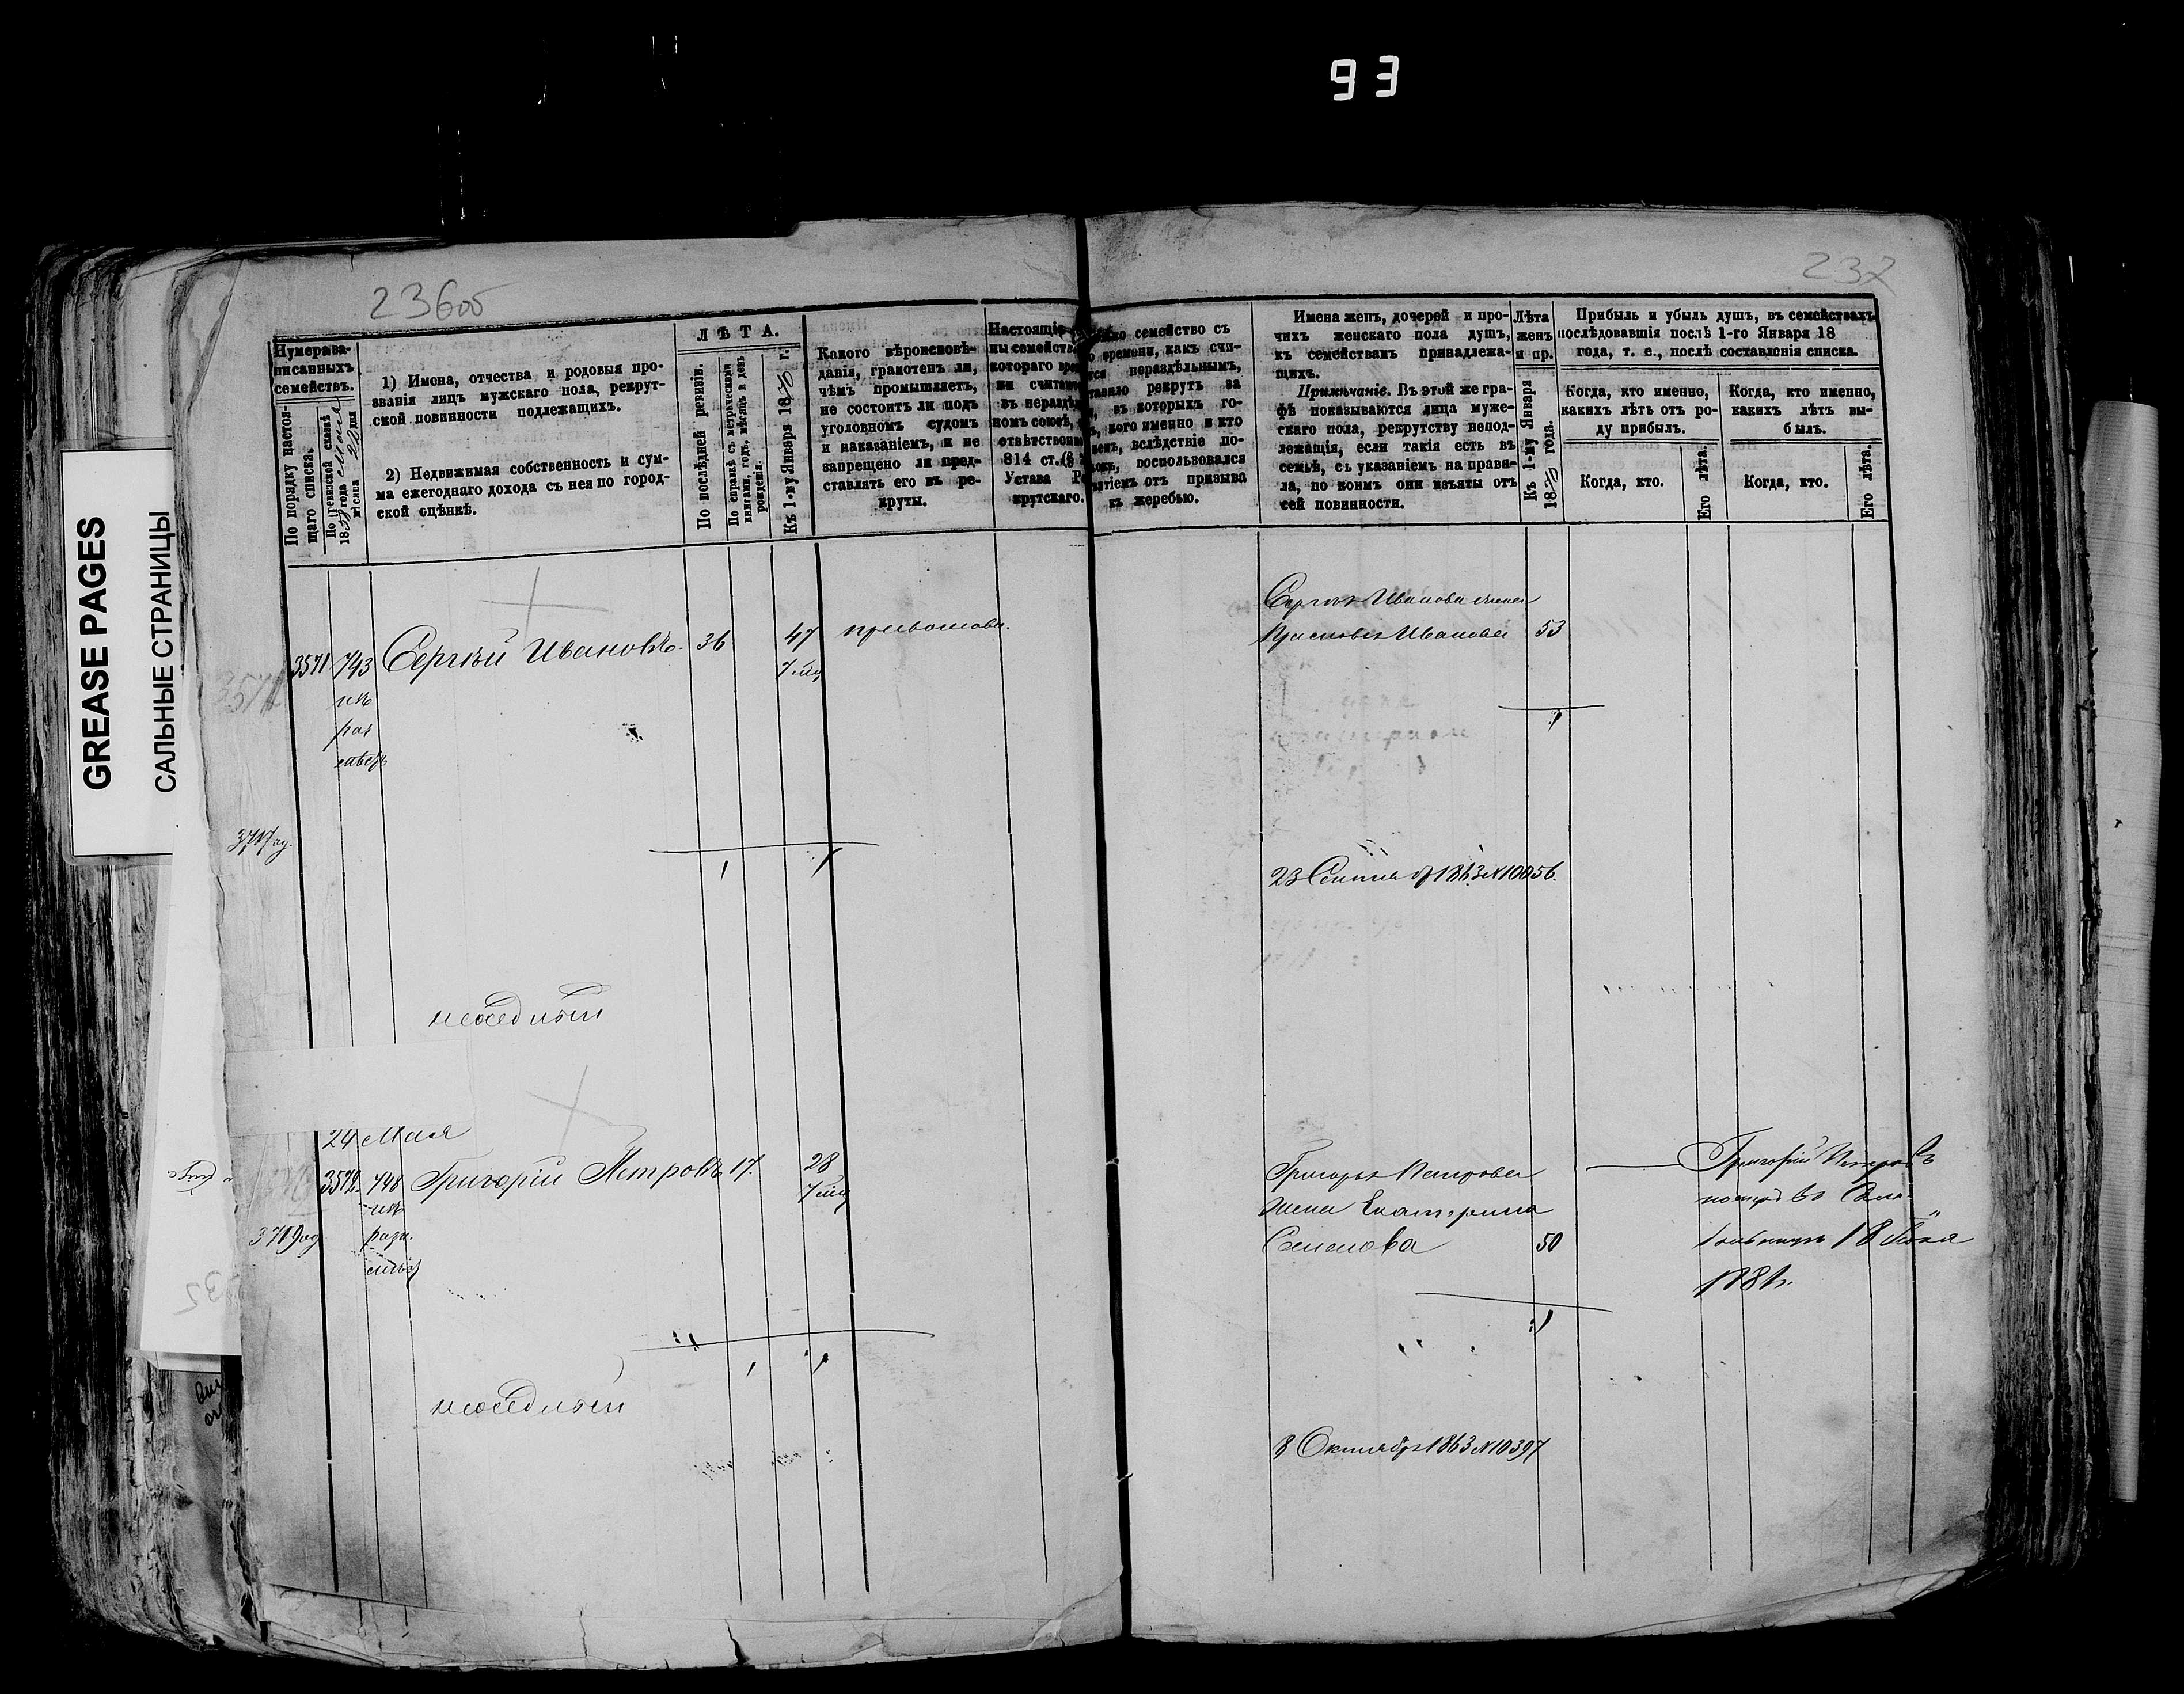 93
236об
237
GREASE PAGES
САЛЬНЫЕ СТРАНИЦЫ
Нумера за-
писанныхъ
семействъ.
По порядку настоя-
щаго списка.
По ревизской сказкѣ
1858 года Мая
мѣсяца 22 дня
1) Имена, отчества и родовыя про-
званія лицъ мужскаго пола, рекрут-
ской повинности подлежащихъ.
2) Недвижимая собственность и сум-
ма ежегоднаго дохода съ нея по город-
ской оцѣнкѣ.
ЛѢТА.
По послѣдней ревизіи.
По справкѣ съ метрическими
книгами, годъ, мѣсяцъ и день
рожденія.
Къ 1-му Января 1870 г.
Какого вѣроисповѣ-
данія, грамотенъ ли,
чѣмъ промышляетъ,
не состоитъ ли подъ
уголовнымъ судомъ
и наказаніемъ, и не
запрещено ли пред-
ставлять его въ ре-
круты.
Настоящіе
ны семейств
котораго вре
ни считаю
въ нераздѣ
номъ союзѣ,
отвѣтственно
814 ст.
Устава Ре
крутскаго.
семейство съ
времени, какъ счи-
тся нераздѣльнымъ,
ставило рекрутъ за
въ которыхъ го-
кого именно и кто
вслѣдствіе по-
воспользовался
ятіемъ отъ призыва
къ жеребью.
Имена женъ, дочерей и про-
чихъ женскаго пола душъ,
къ семействамъ принадлежа-
щихъ.
Примѣчаніе. Въ этой же гра-
фѣ показываются лица муже-
скаго пола, рекрутству непод-
лежащія, если такія есть въ
семьѣ, съ указаніемъ на прави-
ла, по коимъ они изъяты отъ
сей повинности.
Лѣта
женъ
и пр.
Къ 1-му Января
1870 года.
Прибыль и убыль душъ, въ семействахъ
послѣдовавшія послѣ 1-го Января 18
года, т. е., послѣ составленія списка.
Когда, кто именно,
какихъ лѣтъ отъ ро-
ду прибылъ.
Когда, кто.
Его лѣта.
Когда, кто именно,
какихъ лѣтъ вы-
былъ.
Когда, кто.
Его лѣта.
3571 743 Сергѣй Ивановъ 36 47 православн.
изъ
раз
Сергѣя Иванова жена
Прасковья Иванова 53
1
1 1
23 Сентяб 1863 N 10056.
24 Мая
3572. 748 Григорій Петровъ 17. 28
изъ
разн.
Григорья Петрова
жена Екатерина
Семенова 50
Григорій Петровъ
18
1881г.
1
1 1
8 Октября 1863 N 10397